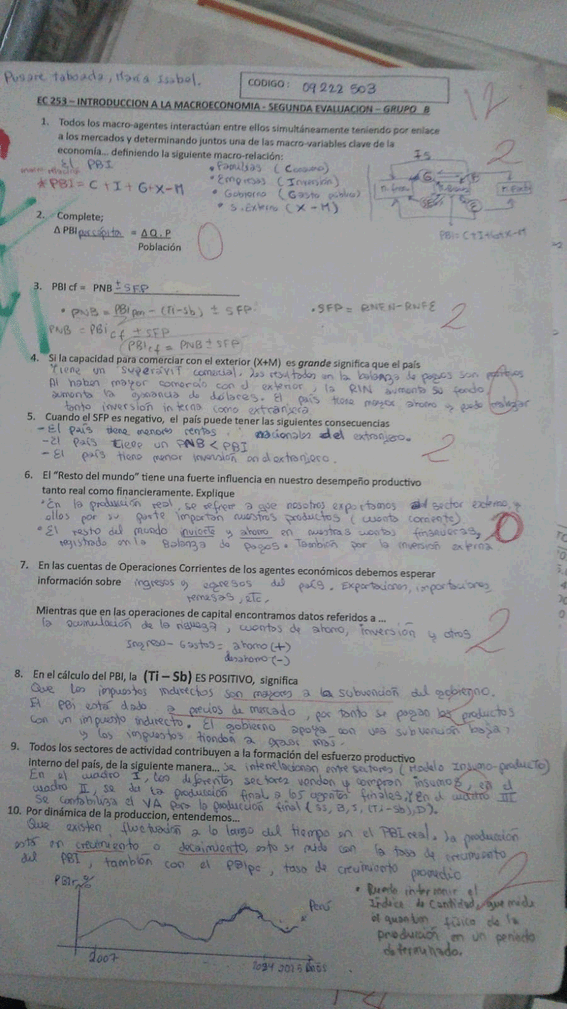 Pusare Taboada, María Isabel.
CODIGO: 09222503
12
EC 253 – INTRODUCCION A LA MACROECONOMIA - SEGUNDA EVALUACION – GRUPO B
1. Todos los macro-agentes interactúan entre ellos simultáneamente teniendo por enlace
a los mercados y determinando juntos una de las macro-variables clave de la
economía... definiendo la siguiente macro-relación:
2
El PBI
* PBI = C + I + G + X - M
• Familias (Consumo)
• Empresas (Inversión)
• Gobierno (Gasto público)
• S. Externo (X - M)
PBI = C + I + G + X - M
2. Complete;
Δ PBI per cápita = Δ Q . P
Población
0
3. PBI cf = PNB ± SFP
• PNB = PBI pm - (Ti - Sb) ± SFP
• SFP = RNFN - RNFE
2
PNB = PBI cf ± SFP
PBI cf = PNB ± SFP
4. Si la capacidad para comerciar con el exterior (X+M) es grande significa que el país
Tiene un superávit comercial, los resultados en la balanza de pagos son positivos
Al haber mayor comercio con el exterior, la RIN aumenta su fondo
aumenta la ganancia de dólares. El país tiene mayor ahorro y puede
tanto inversión interna como extranjera
5. Cuando el SFP es negativo, el país puede tener las siguientes consecuencias
- El país tiene menores rentas nacionales del extranjero.
- El país tiene un PNB < PBI
- El país tiene menor inversión en el extranjero.
2
6. El "Resto del mundo" tiene una fuerte influencia en nuestro desempeño productivo
tanto real como financieramente. Explique
• En la producción real, se refiere a que nosotros exportamos al sector externo y
ellos por su parte importan nuestros productos (cuenta corriente)
• El resto del mundo invierte y ahorra en nuestras cuentas financieras,
registrado en la Balanza de Pagos. También por la inversión externa
0
7. En las cuentas de Operaciones Corrientes de los agentes económicos debemos esperar
información sobre ingresos y egresos del país. Exportaciones, importaciones
remesas, etc.
Mientras que en las operaciones de capital encontramos datos referidos a ...
la acumulación de la riqueza, cuentas de ahorro, inversión y otros
Ingreso - Gastos = ahorro (+)
desahorro (-)
2
8. En el cálculo del PBI, la (Ti – Sb) ES POSITIVO, significa
Que los impuestos indirectos son mayores a la subvención del gobierno.
El PBI está dado a precios de mercado, por tanto se pagan los productos
con un impuesto indirecto. El gobierno apoya con una subvención baja,
y los impuestos tienden a ser más.
9. Todos los sectores de actividad contribuyen a la formación del esfuerzo productivo
interno del país, de la siguiente manera... Se interrelacionan entre sectores (Modelo Insumo-producto)
En el cuadro I, los diferentes sectores venden y compran insumos, en el
cuadro II, se da la producción final a los agentes finales, y en el cuadro III
Se contabiliza el VA para la producción final (Ss, B, S, (Ti-Sb), D).
10. Por dinámica de la producción, entendemos...
Que existen fluctuación a lo largo del tiempo en el PBI real. La producción
está en crecimiento o decaimiento, esto se mide con la tasa de crecimiento
del PBI, también con el PBIpc, tasa de crecimiento promedio
2
PBIr %
Perú
2007
• Puede intervenir el
Indice de Cantidad, que mide
el quantum físico de la
producción en un periodo
determinado.